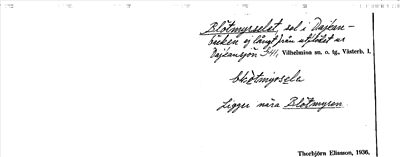 Blötmyrselet, sel i Dajkan-
bäcken ej långt från utflödet ur
Dajkansjön 341, Vilhelmina sn. o. tg., Västerb. l.
Ligger nära Blötmyren.
Thorbjörn Eliasson, 1936.